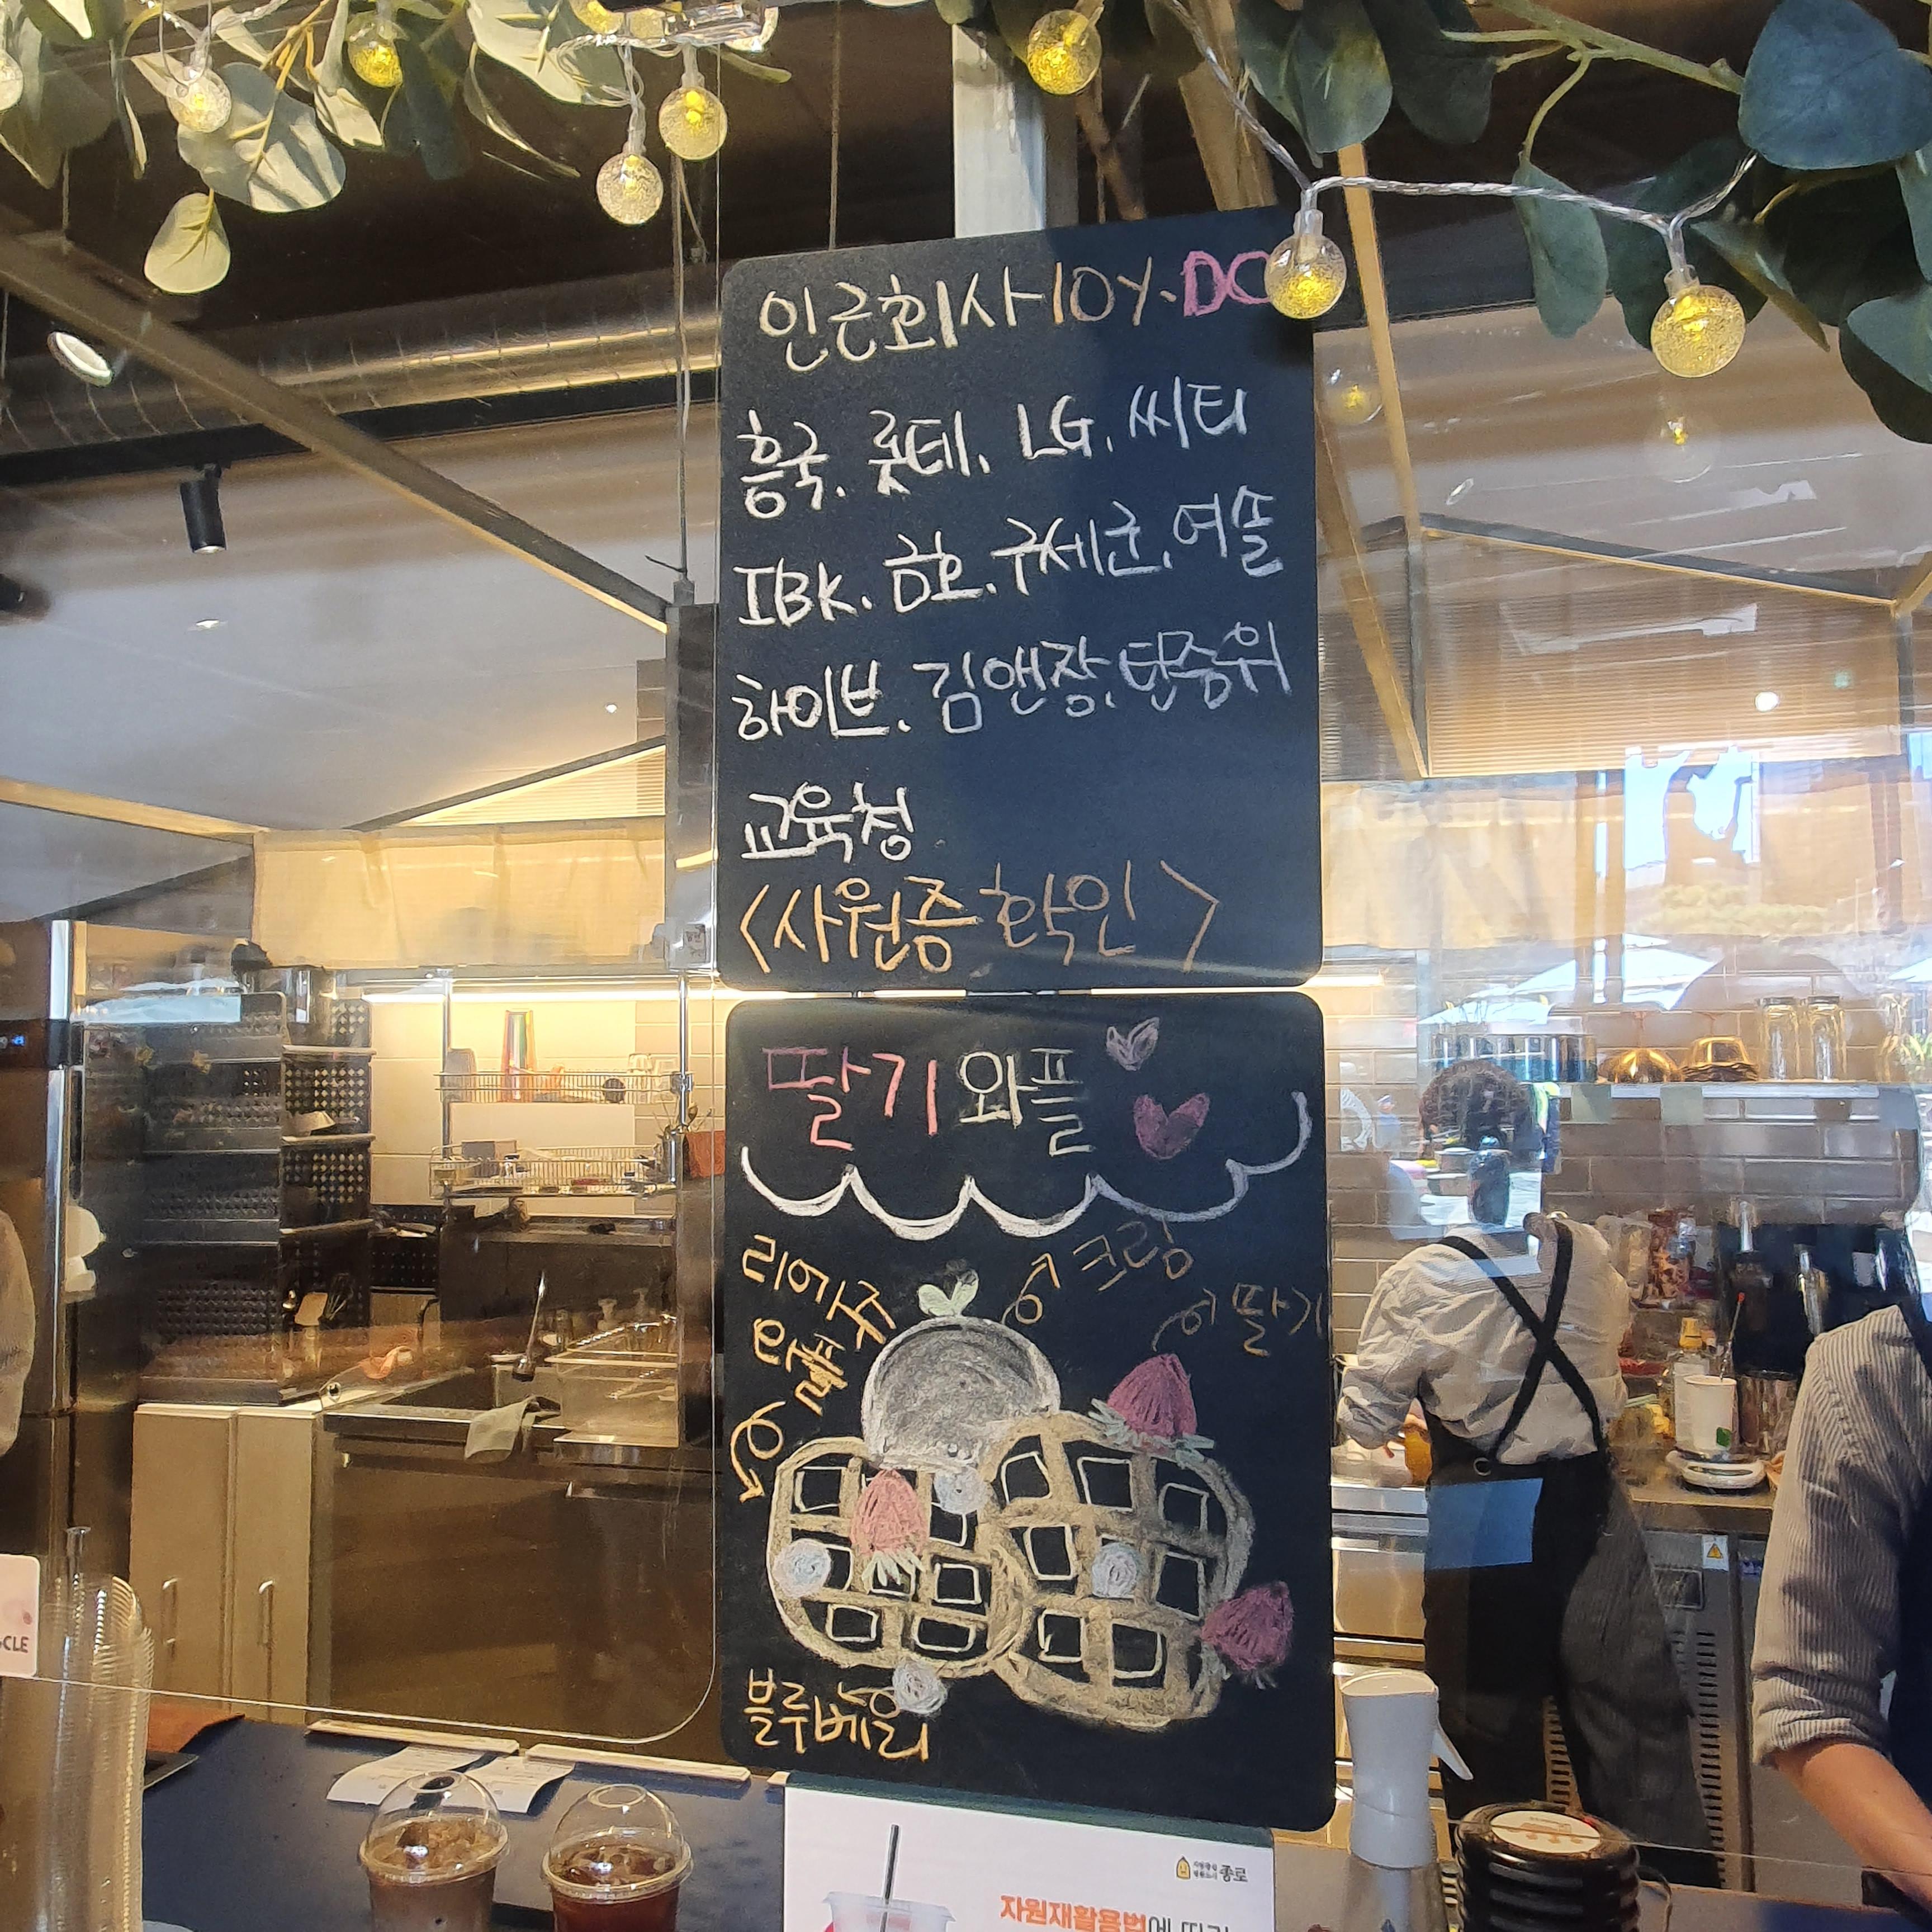 인근회사 10%. DC
흥국. 롯데. LG. 씨티
IBK. 금호. 구세군. 여솔
하이브. 김앤장. 탄중위
교육청
<사원증 확인>
딸기 와플
크림
딸기
리에쥬
와플
블루베리
CLE
종로
자원재활용법에 따라